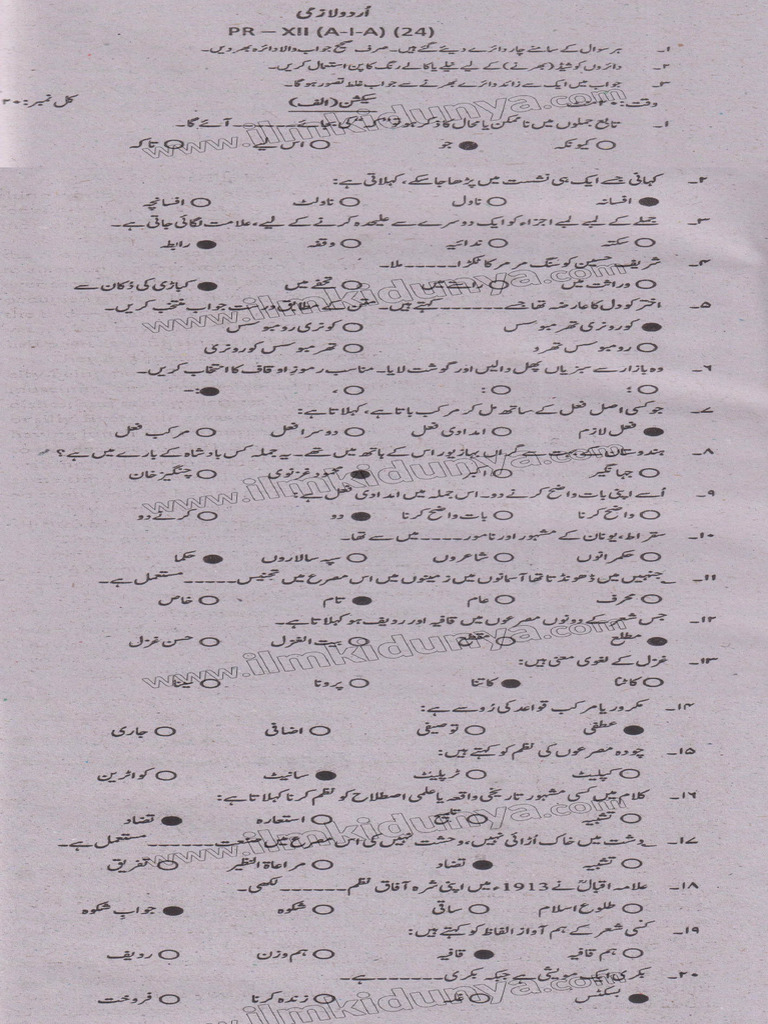 اُردو لازمی
PR – XII (A-I-A) (24)
۱۔ ہر سوال کے سامنے چار دائرے دیئے گئے ہیں۔ صرف صحیح جواب والا دائرہ بھر دیں۔
۲۔ دائروں کو شیڈ (بھرنے) کے لیے نیلے یا کالے رنگ کا پن استعمال کریں۔
۳۔ جواب میں ایک سے زائد دائرے بھرنے سے جواب غلط تصور ہو گا۔
وقت: سیکشن (الف) کل نمبر: ۲۰
۱۔ تابع جملوں میں ناممکن یا محال کا ذکر ہو تو کی بجائے ______ آئے گا۔
کیونکہ جو اس لیے تاکہ
۲۔ کہانی جسے ایک ہی نشست میں پڑھا جا سکے، کہلاتی ہے:
افسانہ ناول ناولٹ افسانچہ
۳۔ جملے کے لمبے لمبے اجزاء کو ایک دوسرے سے علیحدہ کرنے کے لیے، علامت لگائی جاتی ہے۔
سکتہ ندائیہ وقفہ رابطہ
۴۔ شریف حسین کو سنگ مرمر کا ٹکڑا ______ ملا۔
وراثت میں تحفے میں کباڑی کی دُکان سے
۵۔ اختر کو دل کا عارضہ تھا جسے ______ کہتے ہیں۔ متن کے مطابق درست جواب منتخب کریں۔
کورونری تھرمبوسس کونری رومبوسس
رومبوسس تھرو تھرمبوسس کورونری
۶۔ وہ بازار سے سبزیاں پھل دالیں اور گوشت لایا۔ مناسب رموزِ اوقاف کا انتخاب کریں۔
؛ : ، :-
۷۔ جو کسی اصل فعل کے ساتھ مل کر مرکب بناتا ہے، کہلاتا ہے:
فعل لازم امدادی فعل دوسرا فعل مرکب فعل
۸۔ ہندوستان کے بہت سے گراں بہا زیور اس کے ہاتھ میں تھے۔ یہ جملہ کس بادشاہ کے بارے میں ہے؟
جہانگیر اکبر محمود غزنوی چنگیز خان
۹۔ اُسے اپنی بات واضح کرنے دو۔ اس جملہ میں امدادی فعل ہے:
واضح کرنا بات واضح کرنا دو کرنے دو
۱۰۔ سقراط، یونان کے مشہور اور نامور ______ میں سے تھا۔
حکمرانوں شاعروں سپہ سالاروں حکما
۱۱۔ جنہیں میں ڈھونڈتا تھا آسمانوں میں زمینوں میں اس مصرع میں تجنیس ______ مستعمل ہے۔
محرف عام تام خاص
۱۲۔ جس شعر کے دونوں مصرعوں میں قافیہ اور ردیف ہو کہلاتا ہے۔
مطلع مقطع بیت الغزل حسن غزل
۱۳۔ غزل کے لغوی معنی ہیں:
کاٹنا کاتنا پرونا سینا
۱۴۔ مکر و ریا مرکب قواعد کی رُو سے ہے:
عطفی توصیفی اضافی جاری
۱۵۔ چودہ مصرعوں کی نظم کو کہتے ہیں:
کپلیٹ ٹرپلیٹ سانیٹ کواٹرین
۱۶۔ کلام میں کسی مشہور تاریخی واقعہ یا علمی اصطلاح کو نظم کرنا کہلاتا ہے:
تشبیہ تلمیح استعارہ تضاد
۱۷۔ دشت میں خاک اُڑائی نہیں، وحشت نہیں کی اس مصرع میں صنعت ______ مستعمل ہے۔
تشبیہ تضاد مراعاۃ النظیر تفریق
۱۸۔ علامہ اقبالؒ نے 1913ء میں اپنی شہرہ آفاق نظم ______ لکھی۔
طلوع اسلام ساقی شکوہ جوابِ شکوہ
۱۹۔ کسی شعر کے ہم آواز الفاظ کو کہتے ہیں:
ہم قافیہ قافیہ ہم وزن ردیف
۲۰۔ بکری ایک مویشی ہے جبکہ بکری ______ ہے۔
بسکٹس زندہ کرنا فروخت
www.ilmkidunya.com
www.ilmkidunya.com
www.ilmkidunya.com
www.ilmkidunya.com
www.ilmkidunya.com
www.ilmkidunya.com